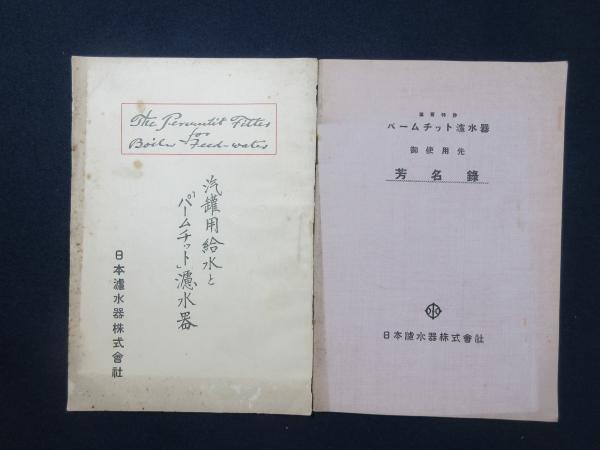 The Permutit Filter
for
Boiler Feed-water
汽罐用給水と
「パームチット」濾水器
日本濾水器株式會社
パームチット濾水器
御使用先
芳名錄
日本濾水器株式會社